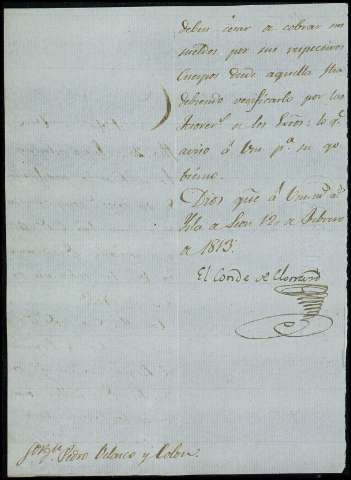 deben cesar a cobrar sus
sueldos por sus respectivos
Cuerpos desde aquella fha
debiendo verificarlo por las
de los Exõs: lo q.e
aviso á Vm p.a su go
bierno.
Dios gũe á Vm m.s a.s
Ysla de Leon 12 de Febrero
de 1813.
El Conde de
Pedro Velasco y Colon.